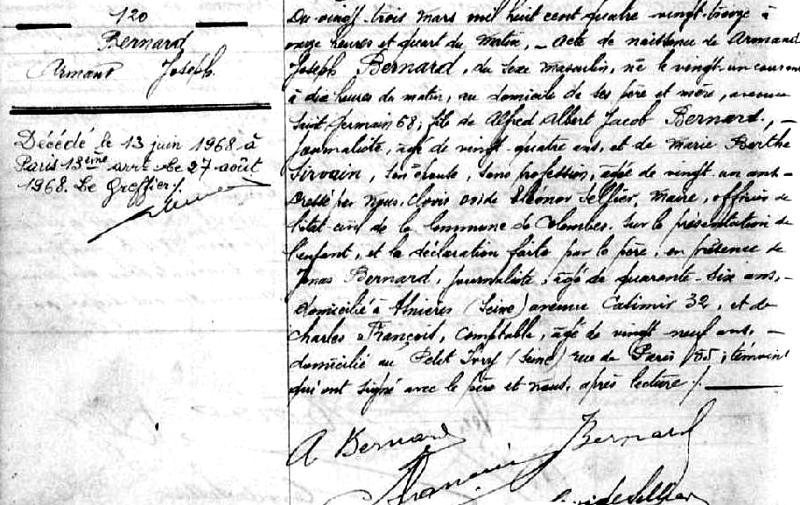 120
Bernard
Armand Joseph
Décédé le 13 juin 1968 à
Paris 13ème arrt. Le 27 août
1968. Le Greffier/.
Du vingt trois mars mil huit cent quatre vingt treize à
onze heures et quart du matin, _ acte de naissance de Armand
Joseph Bernard, du sexe masculin, né le vingt un courant
à dix heures du matin, au domicile de ses père et mère, avenue
Saint Germain 68, fils de Alfred Albert Jacob Bernard, _
journaliste, âgé de vingt quatre ans, et de Marie Berthe
Sirvain, son épouse, sans profession, âgée de vingt un ans _
Dressé par nous, Clovis Eléonor Sellier, Maire, officier de
l'état civil de la Commune de Colombes. Sur la présentation de
l'enfant, et la déclaration faite par le père, en présence de
Jonas Bernard, journaliste, âgé de quarante-six ans, _
domicilié à Asnières (Seine) avenue 32, et de
Charles François, comptable, âgé de vingt neuf ans, _
domicilié au Petit Ivry (Seine) rue de Paris; témoins
qui ont signé avec le père et nous, après lecture /.
A Bernard
Bernard